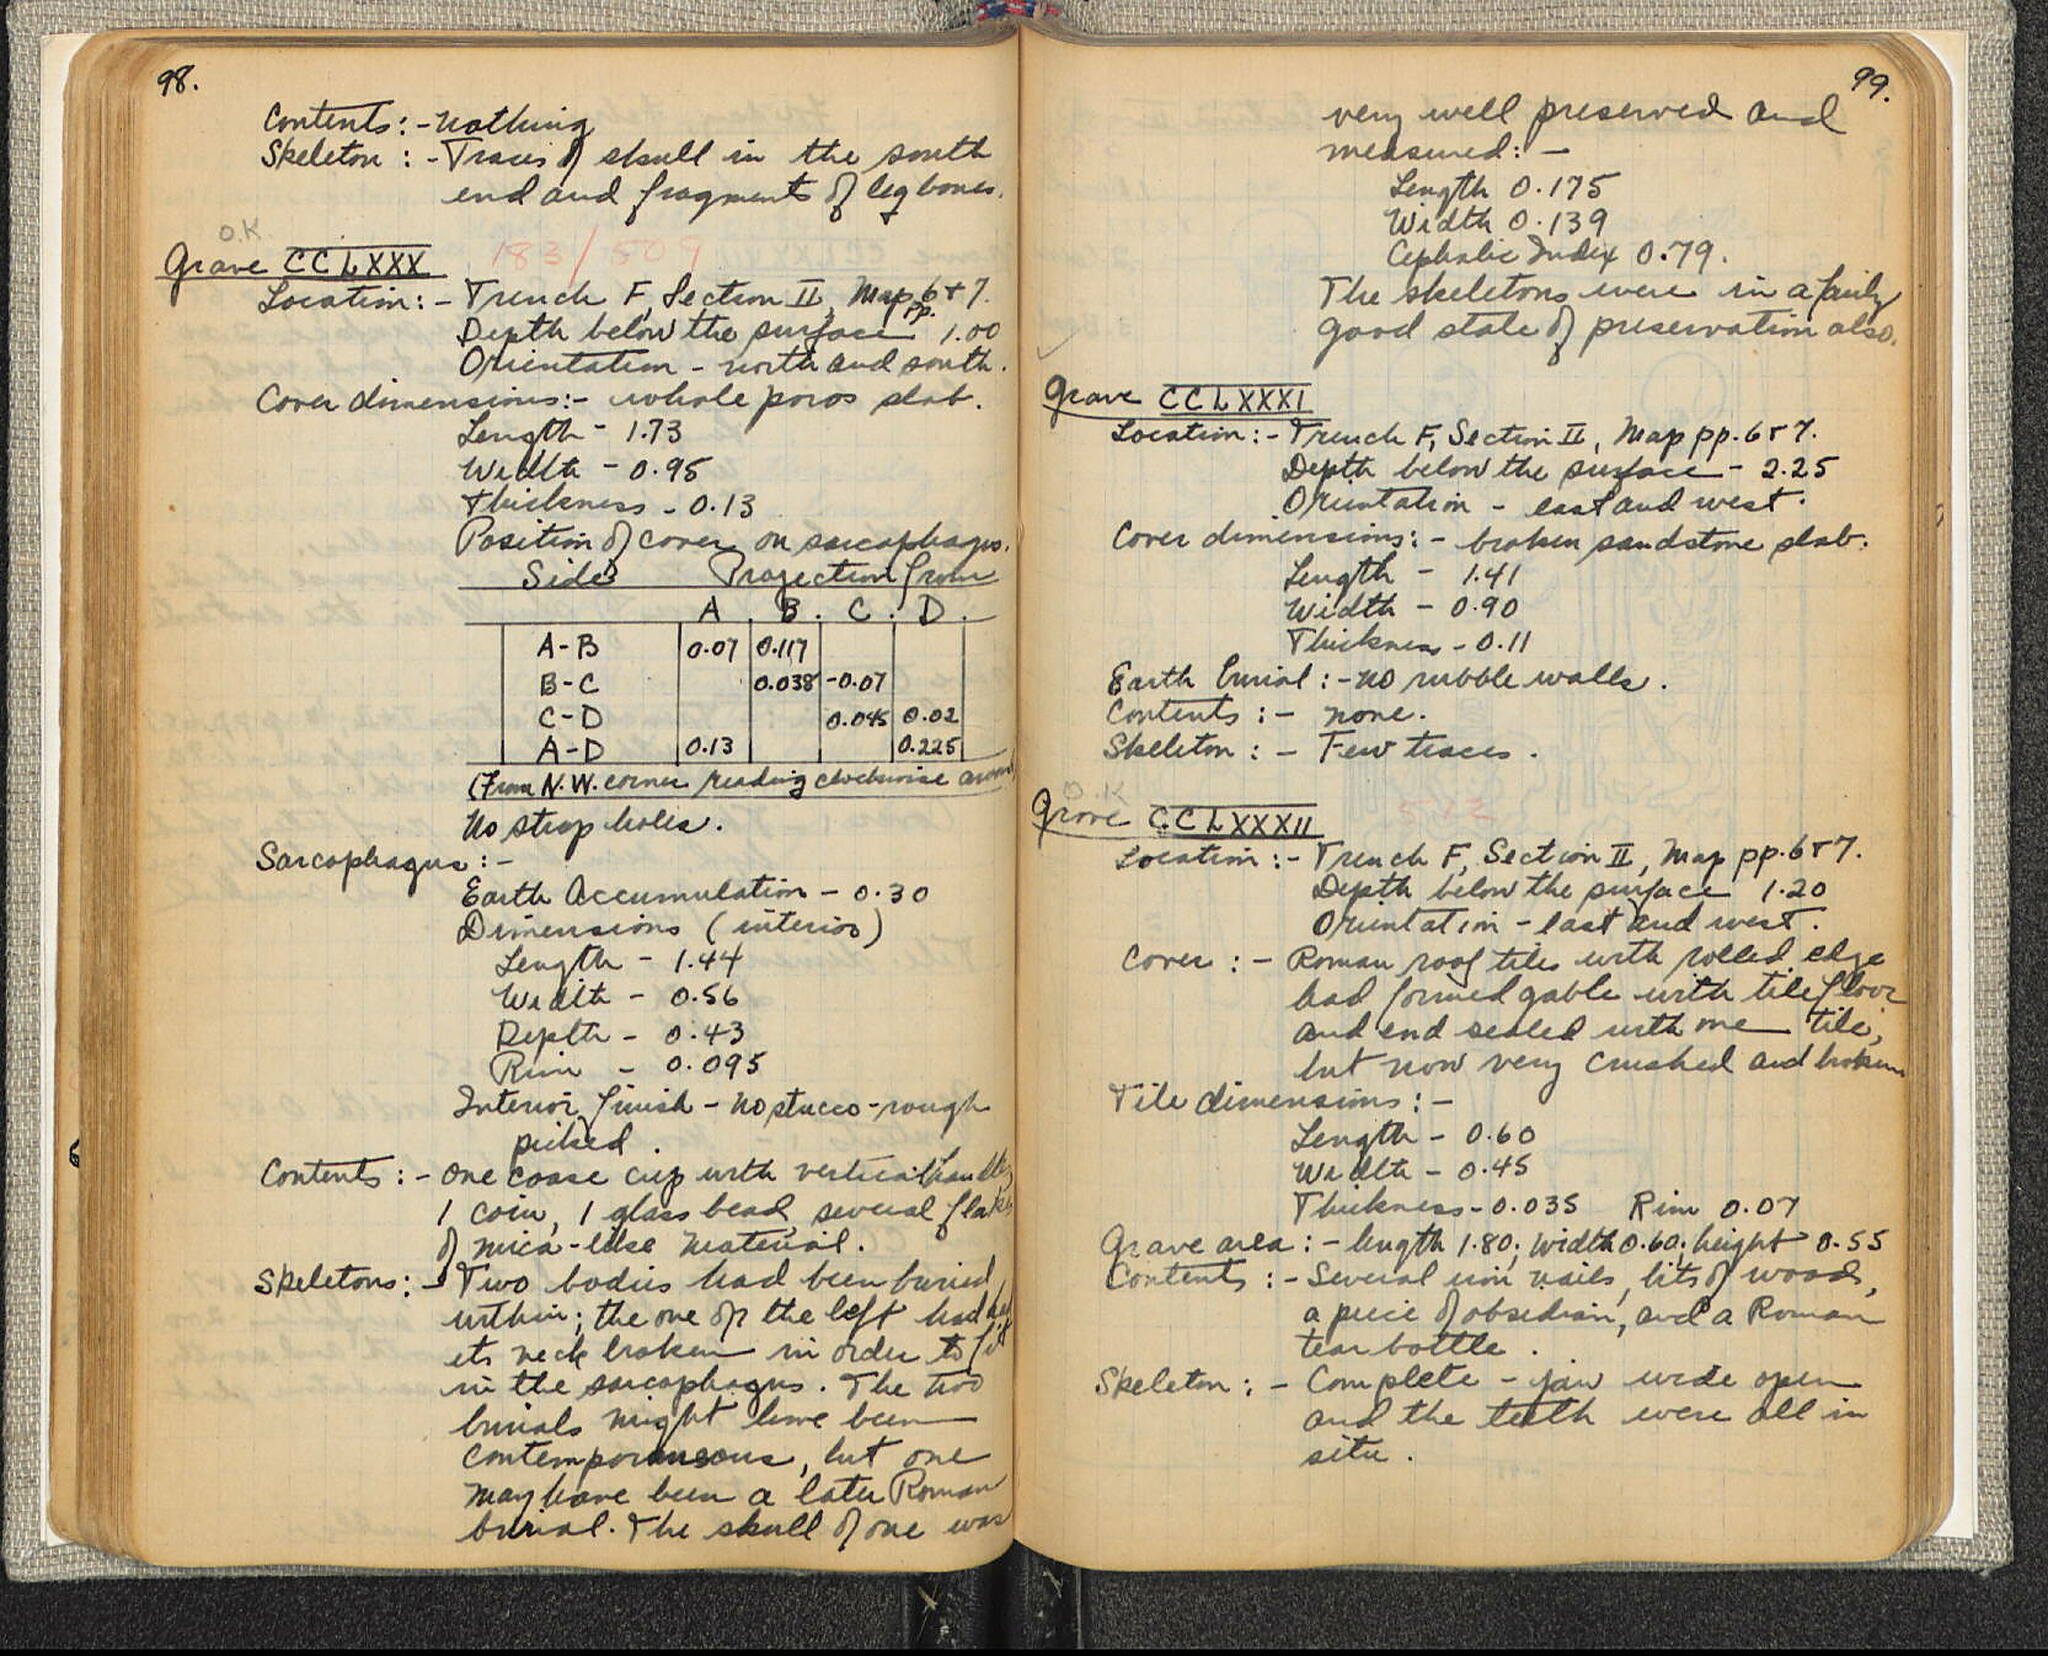 98.
Contents: - nothing
Skeleton: - Traces of skull in the south
end and fragments of leg bones.
O.K.
Grave CCLXXX 183/509
Location: - Trench F, Section II, Map pp. 6 + 7.
Depth below the surface 1.00
Orientation - north and south.
Cover dimensions: - whole poros slab.
Length - 1.73
Width - 0.95
Thickness - 0.13
Position of cover on sarcophagus.
Side Projection from
A. B. C. D.
A-B 0.07 0.117
B-C 0.038 -0.07
C-D 0.045 0.02
A-D 0.13 0.225
(From N.W. corner reading clockwise around
No strap holes.
Sarcophagus: -
Earth Accumulation - 0.30
Dimensions (interior)
Length - 1.44
Width - 0.56
Depth - 0.43
Rim - 0.095
Interior finish - no stucco - rough
picked.
Contents: - one coase cup with vertical handles,
1 coin, 1 glass bead, several flakes
of mica-like material.
Skeletons: - Two bodies had been buried
within; the one on the left had had
its neck broken in order to fit
in the sarcophagus. The two
burials might have been
contemporaneous, but one
may have been a later Roman
burial. The skull of one was
99.
very well preserved and
measured: -
Length 0.175
Width 0.139
Cephalic Index 0.79.
The skeletons were in a fairly
good state of preservation also.
Grave CCLXXXI
Location: - Trench F, Section II, Map pp. 6 + 7.
Depth below the surface - 2.25
Orientation - east and west.
Cover dimensions: - broken sandstone slab.
Length - 1.41
Width - 0.90
Thickness - 0.11
Earth burial: - no rubble walls.
Contents: - none.
Skeleton: - Few traces.
O.K.
Grave CCLXXXII 512
Location: - Trench F, Section II, Map pp. 6 + 7.
Depth below the surface 1.20
Orientation - east and west.
Cover: - Roman roof tiles with rolled edge
had formed gable with tile floor
and end sealed with one tile,
but now very crushed and broken
Tile dimensions: -
Length - 0.60
Width - 0.45
Thickness - 0.035 Rim 0.07
Grave area: - length 1.80; width 0.60; height 0.55
Contents: - Several iron nails, bits of wood,
a piece of obsedian, and a Roman
tear bottle.
Skeleton: - Complete - jaw wide open
and the teeth were all in
situ.